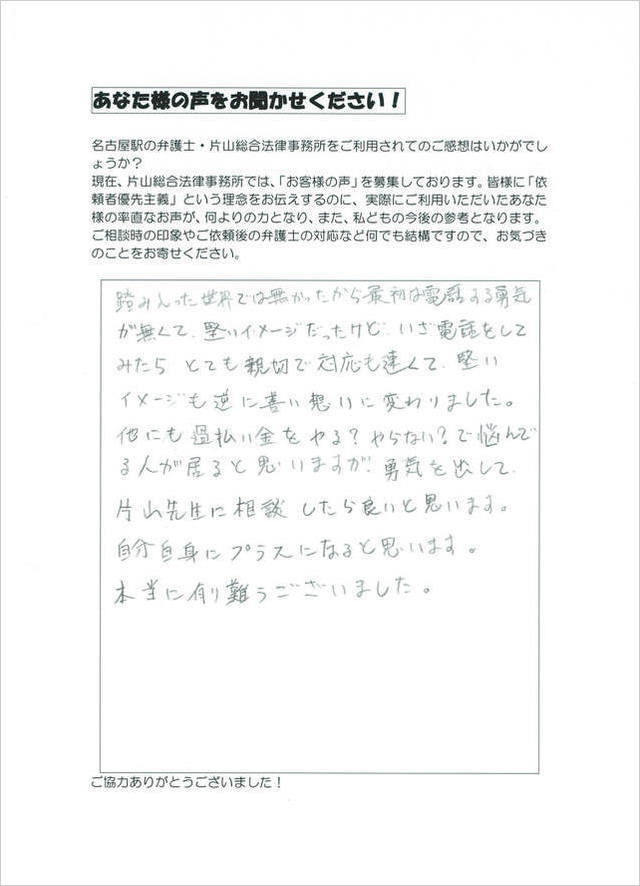 あなた様の声をお聞かせください！
名古屋駅の弁護士・片山総合法律事務所をご利用されてのご感想はいかがでし
ょうか？
現在、片山総合法律事務所では、「お客様の声」を募集しております。皆様に「依
頼者優先主義」という理念をお伝えするのに、実際にご利用いただいたあなた
様の率直なお声が、何よりの力となり、また、私どもの今後の参考となります。
ご相談時の印象やご依頼後の弁護士の対応など何でも結構ですので、お気づき
のことをお寄せください。
踏み入った世界では無かったから最初は電話する勇気
が無くて、堅いイメージだったけど、いざ電話をして
みたら とても親切で対応も速くて、堅い
イメージも逆に善い想いに変わりました。
他にも過払い金をやる？やらない？で悩んで
る人が居ると思いますが、勇気を出して、
片山先生に相談したら良いと思います。
自分自身にプラスになると思います。
本当に有り難うございました。
ご協力ありがとうございました！